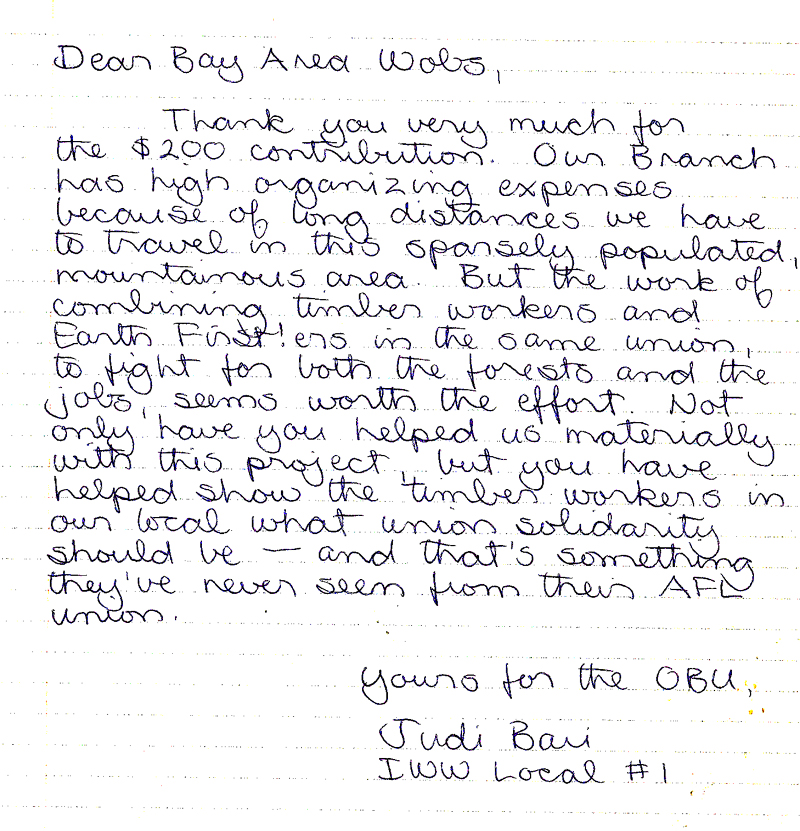 Dear Bay Area Wobs,
Thank you very much for
the $200 contribution. Our Branch
has high organizing expenses
because of long distances we have
to travel in this sparsely populated,
mountainous area. But the work of
combining timber workers and
Earth First!ers in the same union,
to fight for both the forests and the
jobs, seems worth the effort. Not
only have you helped us materially
with this project, but you have
helped show the timber workers in
our local what union solidarity
should be — and that's something
they've never seen from their AFL
union.
Yours for the OBU,
Judi Bari
IWW Local #1